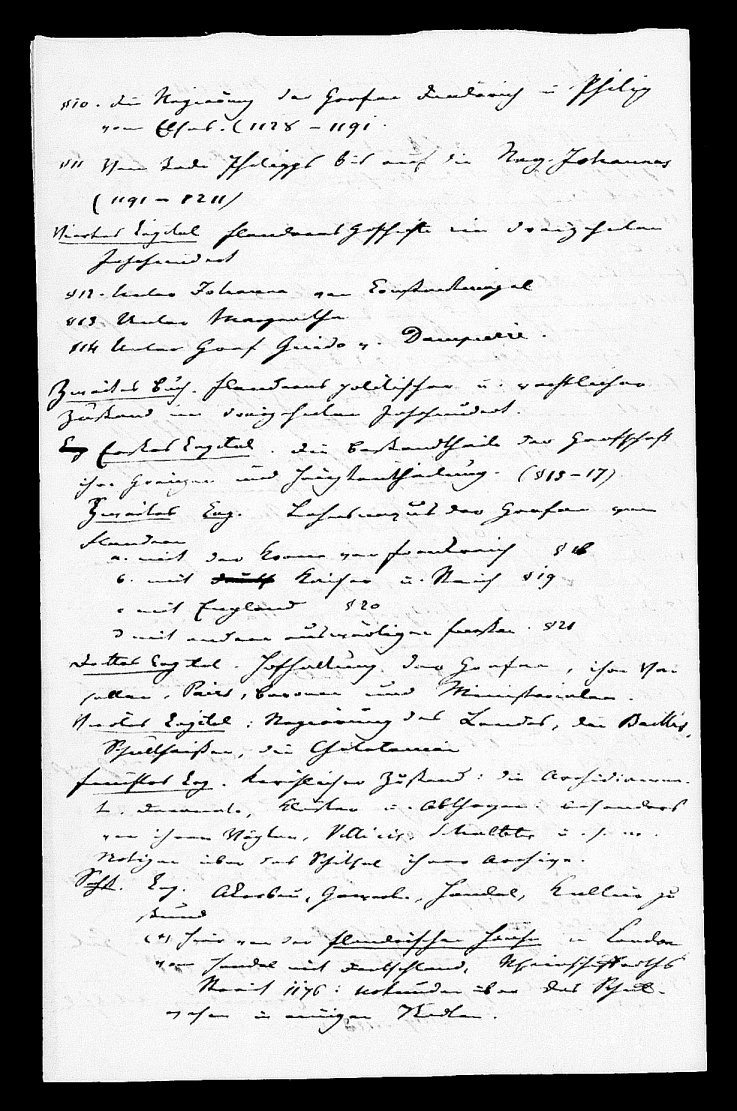 §10. die Regierung der Grafen Diederich u Philipp
vom Elsas. (1128 – 1191.
§11 Vom Tode Philipps bis auf die Reg. Johannas
(1191 – 1211)
Viertes Capitel Flanderns Geschichte im dreizehnten
Jahrhundert
§12. Unter Johanna von Constantinopel
§13 Unter Margaretha
§14 Unter Graf Guido v. Dampierre.
Zweites Buch. Flanderns politischer u. rechtlicher
Zustand im dreizehnten Jahrhundert.
Erstes Capitel. die Bestandtheile der Grafschaft
ihre Grenzen und Haupteintheilung. (§15–17)
Zweites Cap. Lehnsnexus der Grafen von
Flandern
a. mit der Krone von Frankreich §18
b. mit Kaiser u. Reich §19
c mit England §20
d mit andern auswärtigen Fürsten. §21
Drittes Capitel. Hofhaltung der Grafen, ihre Va
sallen, Pairs, Baronen und Ministerialen.
Viertes Capitel: Regierung des Landes, die Baillis,
Schultheißen, die Chatelaneien
Fünftes Cap. Kirchlicher Zustand: die Archidiacona
te. Decanate, Klöster u. Abtheyen: besonders
von ihren Vögten, Villicis, Schultete u. s. w.
Notizen über das Schiksal ihrer Archive.
Sechst. Cap. Akerbau, Gewerbe, Handel, Cultur zu
stand
(*) hier von der flandrischen Hanse in London
vom Handel mit Deutschland, Rheinschiffarths
Streit 1176: Urkunden über das Schul-
wesen in einigen Städten.